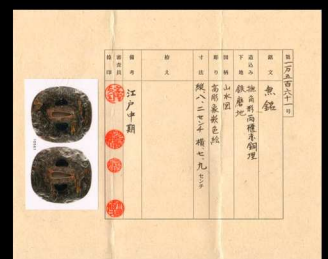 第一万五百六十一号
銘文 無銘
造込み 撫角形両櫃赤銅埋
下地 鉄磨地
図柄 山水図
彫り 高彫象嵌色絵
寸法 縦八、二センチ 横七、九センチ
拵え
備考 江戸中期
審査員
検印